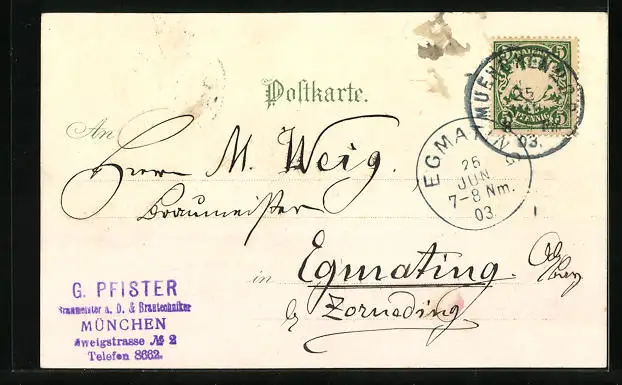 Postkarte.
BAYERN
5 5
PFENNIG
MUENCHEN
03.
An
Herrn M. Weig.
Braumeister
EGMATING
26
JUN
7-8 Nm.
03
in Egmating.
b/ Zorneding
G. PFISTER
Braumeister a. D. & Brautechniker
MÜNCHEN
Zweigstrasse № 2
Telefon 8662.